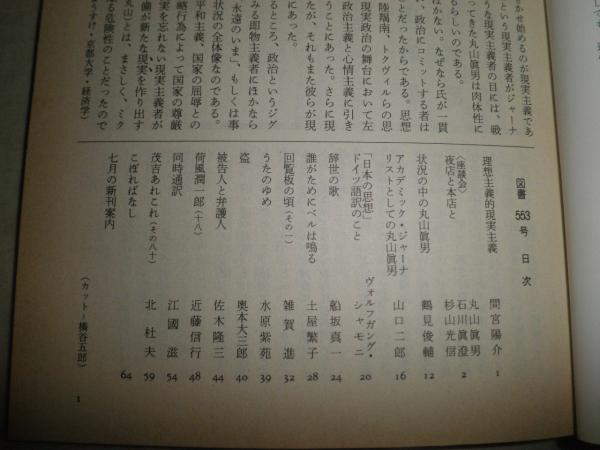 かせ始めるのが現実主義であ
という現実主義者がジャーナ
ってきた丸山眞男は肉体性に
うな現実主義者の目には、戦
るらしいのである。
はかない。なぜなら氏が一貫
、政治にコミットする者は
とだったからである。思想
陸羯南、トクヴィルらの思
現実政治の舞台において左
政治主義と心情主義に引き
うことにあった。さらに現
たが、それもまた彼らが現
にあった。
るところ、政治というジグ
みる即物主義者にほかなら
「永遠のいま」、もしくは事
状況の全体像なのである。
平和主義、国家の屈辱との
略行為によって国家の尊厳
実を忘れない現実主義者が
備が新たな現実を作り出す
丸山とは、まさしく、ミク
る危険性のことだったので
うすけ・京都大学・経済学)
図書 553号 目次
理想主義的現実主義 間宮陽介 1
〈座談会〉
夜店と本店と 丸山眞男 石川眞澄 杉山光信 2
状況の中の丸山眞男 鶴見俊輔 12
アカデミック・ジャーナ
リストとしての丸山眞男 山口二郎 16
「日本の思想」
ドイツ語訳のこと ヴォルフガング・シャモニ 20
辞世の歌 船坂真一 24
誰がためにベルは鳴る 土屋繁子 28
回覧板の頃(その一) 雑賀進 32
うたのゆめ 水原紫苑 39
盗 奥本大三郎 40
被告人と弁護人 佐木隆三 44
荷風潤一郎(十八) 近藤信行 48
同時通訳 江國滋 54
茂吉あれこれ(その八十) 北杜夫 59
こぼればなし 64
七月の新刊案内
(カット=橋谷五郎)
1